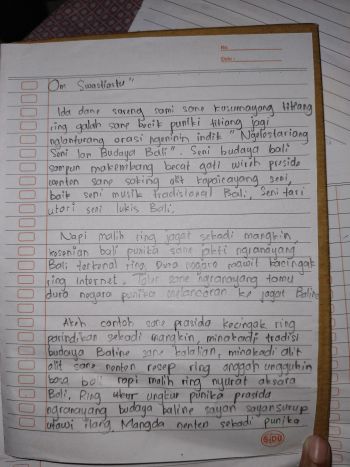 No.
Date :
Om Swastiastu"
Ida dane sareng sami sane kasumayang titiang
ring galah sane becik puniki titiang jagi
nglanturang orasi ngeninin indik "Nglestariang
Seni lan Budaya Bali". Seni budaya bali
sampun makembang becat gati wireh presida
wenten sane saking alit kapaicayang seni,
baik seni musik tradisional Bali, Seni tari
utawi seni lukis Bali.
Napi malih ring jagat sekadi mangkin,
kesenian bali punika sane jakti ngranayang
Bali terkenal ring Dura negara mawit kacingak
ring internet. Taler sane ngranayang tamu
dura negara punika melancaran ke jagat Baline
Akeh contoh sane prasida kecingak ring
parindikan sekadi mangkin, minakadi tradisi
budaya Baline sane kalalian, minakadi alit
alit sane nenten resep ring anggah ungguhin
basa bali napi malih ring nyurat aksara
Bali. Ring ukur ungkur punika prasida
ngranayang budaya baline sayan sayan surup
utawi ilang. Mangda nenten sekadi punika
SiDU